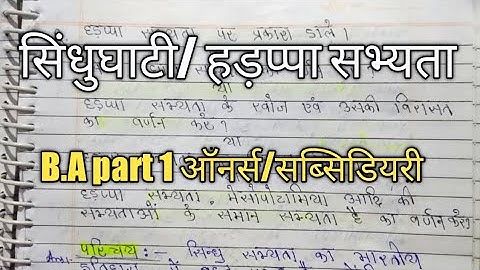 हड़प्पा सभ्यता पर प्रकाश डाले।
सिंधुघाटी/ हड़प्पा सभ्यता
या
हड़प्पा सभ्यता के खोज एवं उसकी विरासत
का वर्णन करें?
या
B.A part 1 ऑनर्स/सब्सिडियरी
हड़प्पा सभ्यता, मेसोपोटामिया आदि की
सभ्यताओं के समान सभ्यता है का वर्णन करें?
Ans- परिचय :- सिन्धु सभ्यता का भारतीय